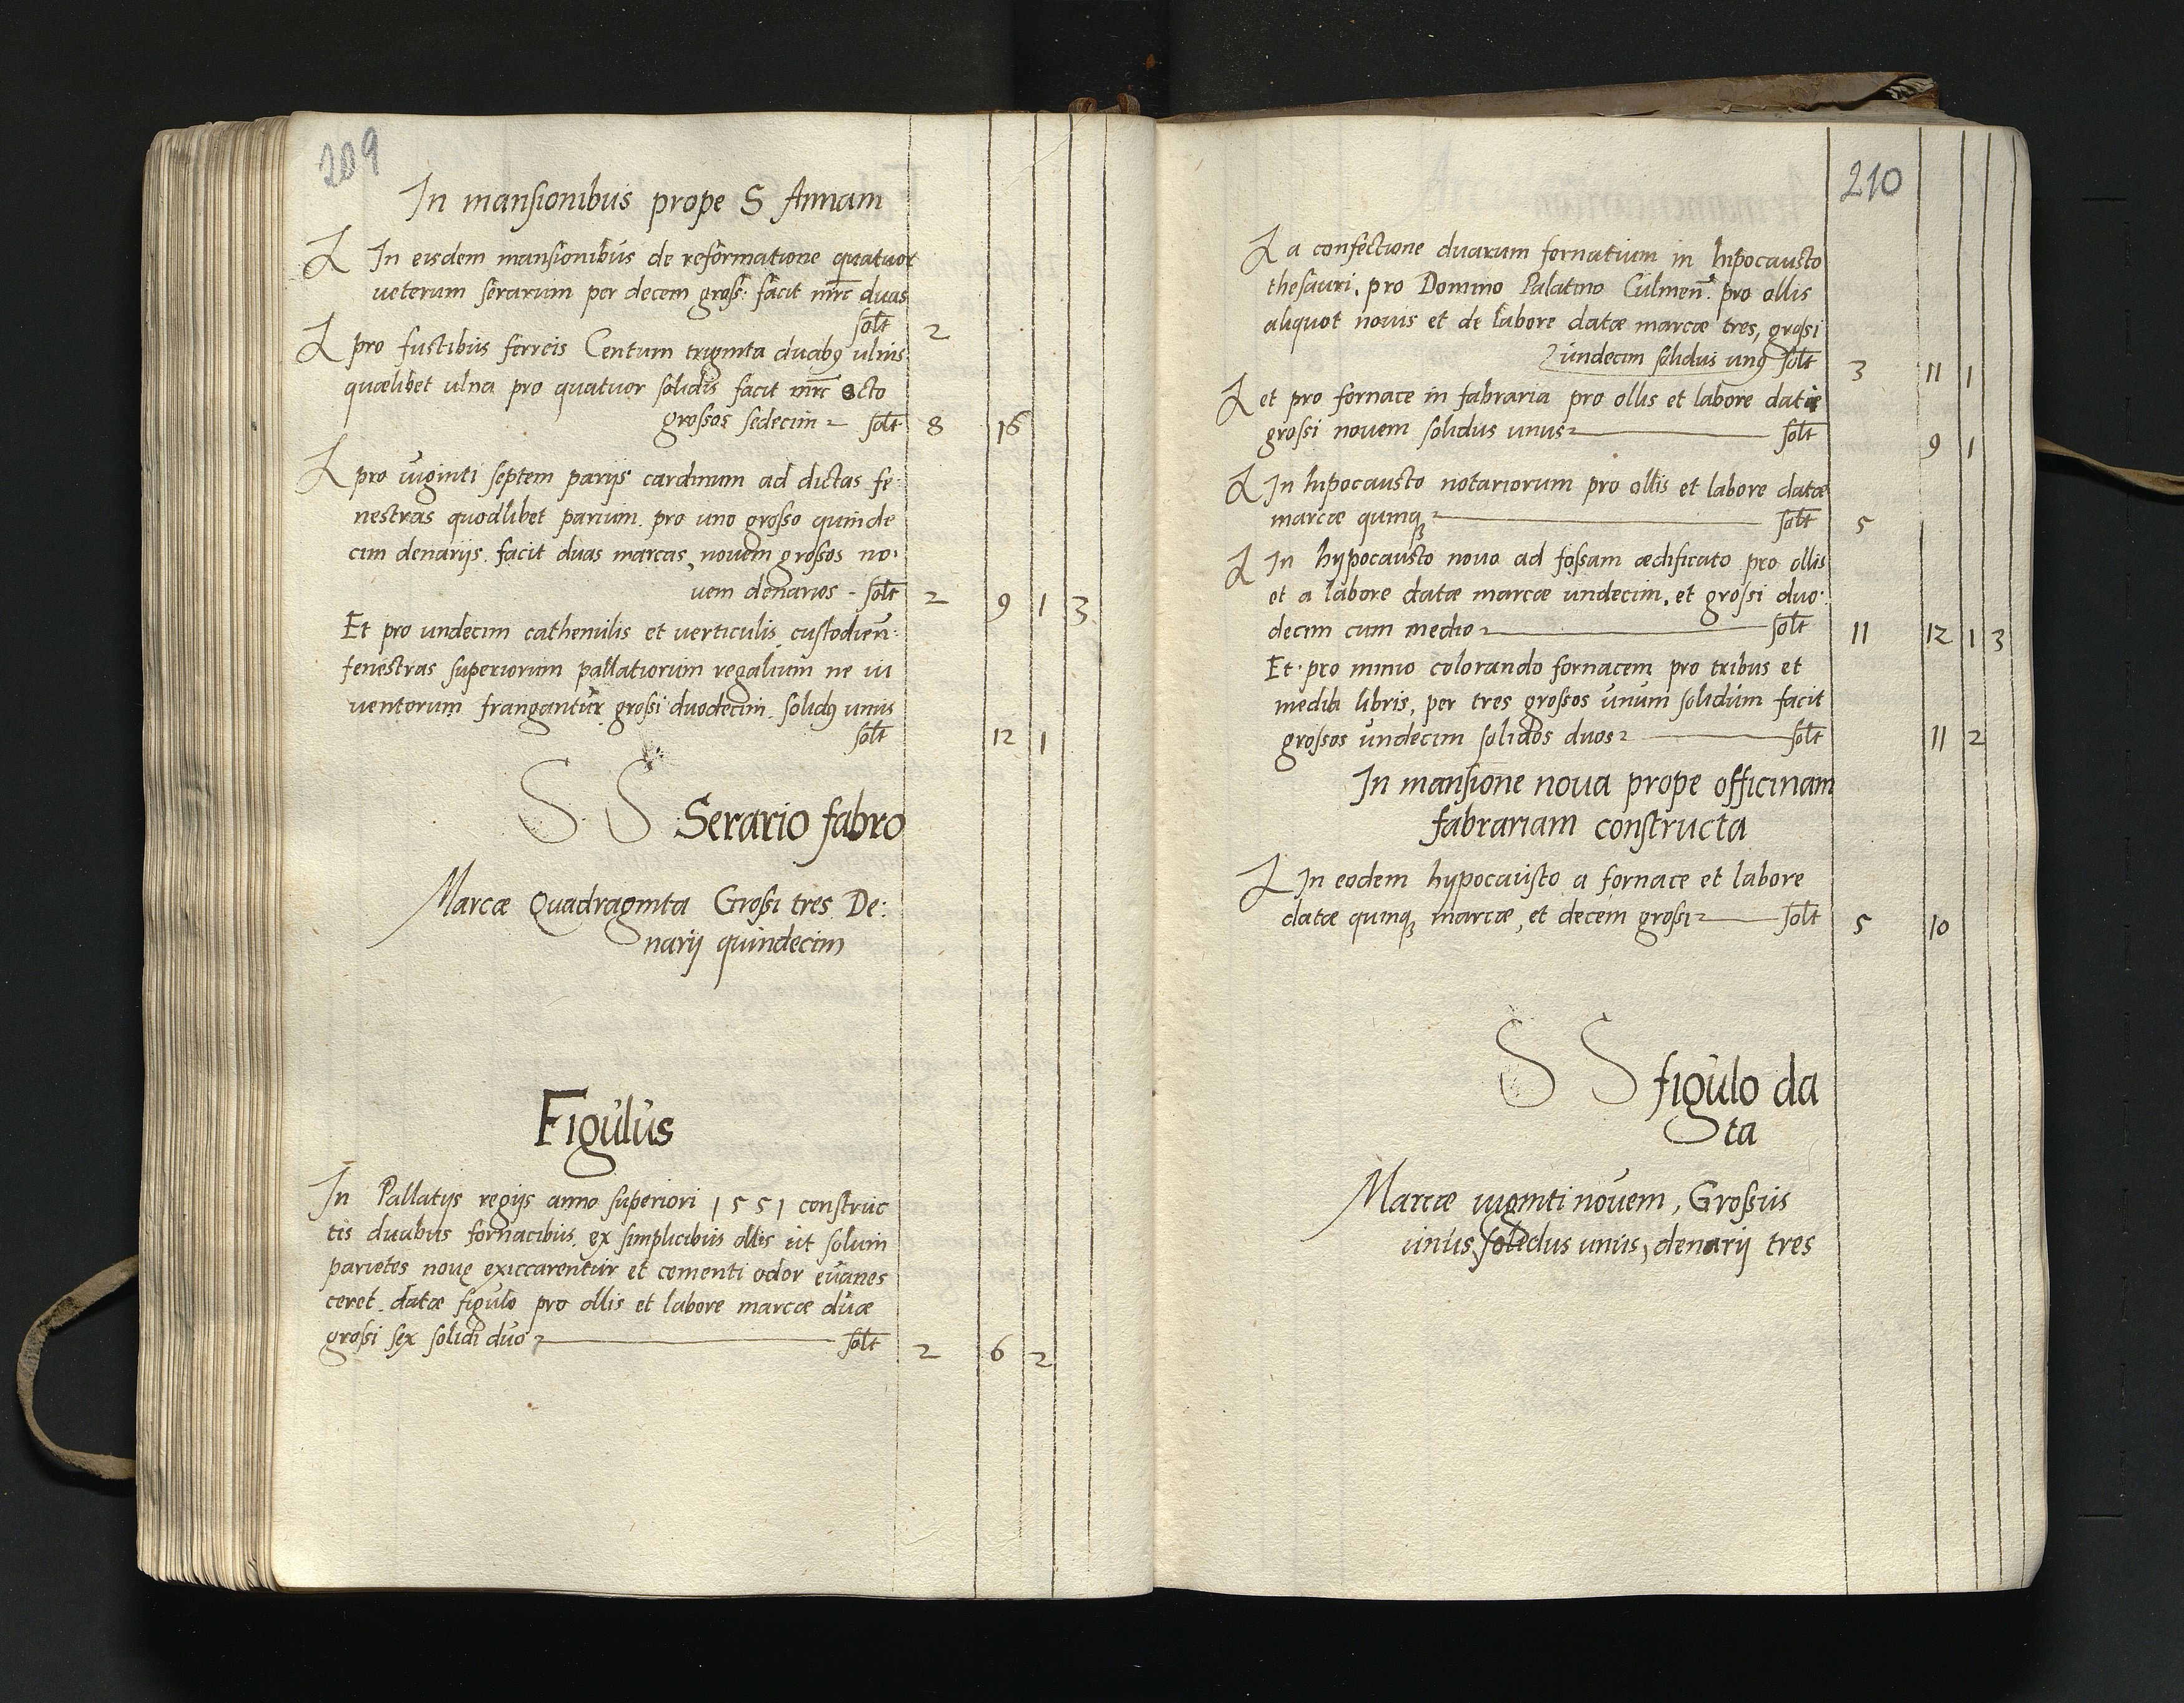 209
In mansionibus prope S Annam
In eisdem mansionibus de reformatione quatuor
veterum serarum per decem gross: facit mrc duas
solt 2
pro fustibus ferreis Centum triginta duabꝫ ulnis
quælibet ulna pro quatuor solidis facit mrc octo
grossos sedecim solt 8 16
pro viginti septem parijs cardinum ad dictas fe:
nestras quodlibet parium pro uno grosso quinde
cim denarijs. facit duas marcas, novem grossos no:
vem denarios - solt 2 9 1 3
Et pro undecim cathenulis et verticulis custodien:
fenestras superiorum pallatiorum regalium ne vi
ventorum frangantur grossi duodecim. solidꝫ unus
solt 12 1
S S Serario fabro
Marcæ Quadraginta Grossi tres De:
narij quindecim
Figulus
In Pallatijs regijs anno superiori 1551 construc
tis duabus fornacibus ex simplicibus ollis ut solum
parietes novę exiccarentur et cementi odor evanes
ceret. datæ figulo pro ollis et labore marcæ duæ
grossi sex solidi duo solt 2 6 2
210
a confectione duarum fornatium in hipocausto
thesauri, pro Domino Palatino Culmen: pro ollis
aliquot novis et de labore datæ marcæ tres, grossi
undecim solidus unꝫ solt 3 11 1
et pro fornace in fabraria pro ollis et labore datæ
grossi novem solidus unus solt 9 1
In hipocausto notariorum pro ollis et labore datæ
marcæ quinqꝫ solt 5
In hypocausto novo ad fossam ædificato pro ollis
et a labore datæ marcæ undecim, et grossi duo:
decim cum medio solt 11 12 1 3
Et pro minio colorando fornacem pro tribus et
media libris, per tres grossos unum solidum facit
grossos undecim solidos duos solt 11 2
In mansione nova prope officinam
fabrariam constructa
In eodem hypocausto a fornace et labore
datæ quinqꝫ marcæ, et decem grossi solt 5 10
S S figulo da
ta
Marcæ viginti novem, Grossus
unus, solidus unus, denarij tres